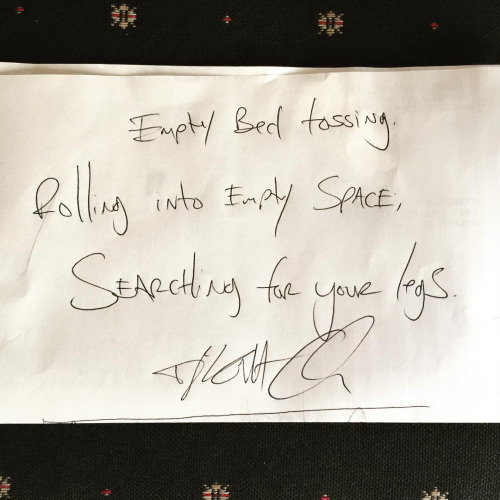 Empty Bed tossing.
Rolling into Empty SPACE,
SEARCHing for your legs.